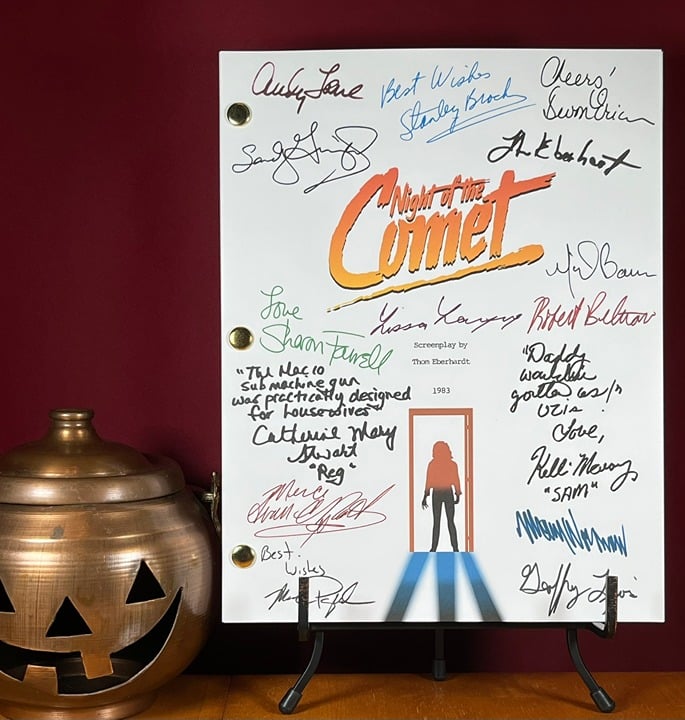 Best Wishes
Stanley Brock
Cheers!
Thom Eberhardt
Night of the
Comet
Love
Sharon Farrell
Robert Beltran
Screenplay by
Thom Eberhardt
1983
"The Mac 10
submachine gun
was practically designed
for housewives"
Catherine Mary
Stewart
"Reg"
"Daddy
would've
gotten us
Uzis.
Love,
Kelli Maroney
"SAM"
Best
Wishes
Geoffrey Lewis